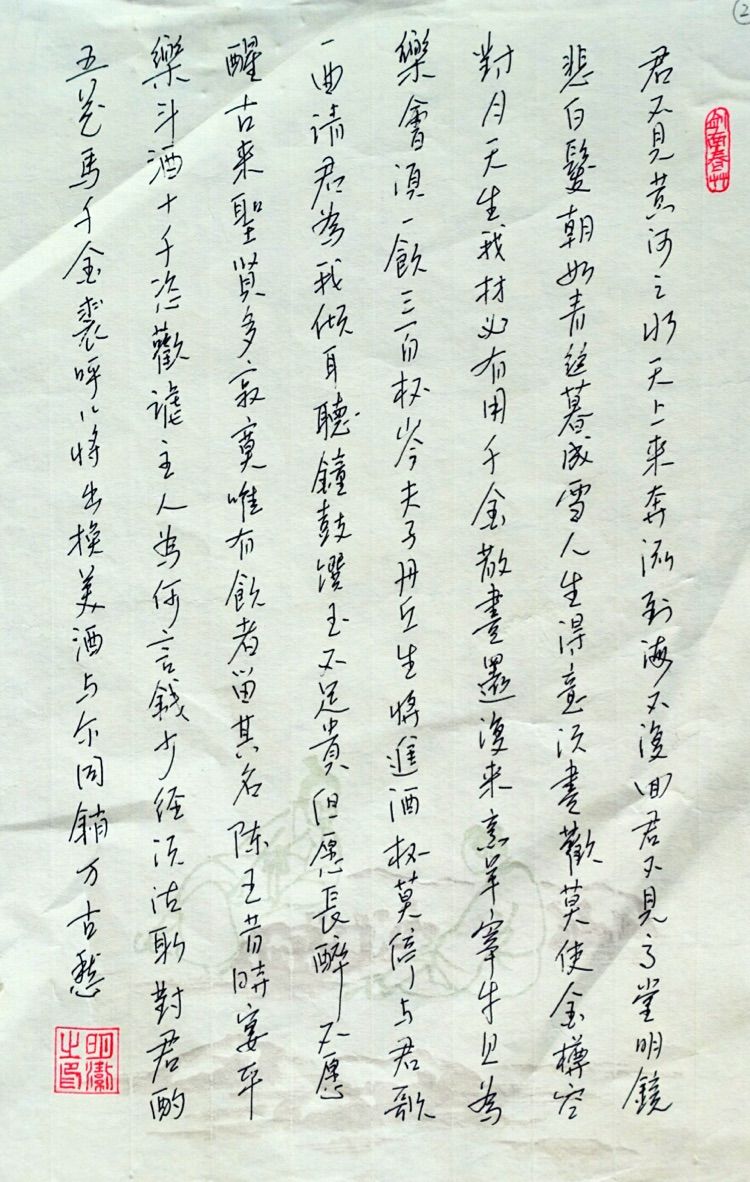 ②
君不見黃河之水天上來奔流到海不復回君不見高堂明鏡
悲白髮朝如青絲暮成雪人生得意須盡歡莫使金樽空
對月天生我材必有用千金散盡還復來烹羊宰牛且為
樂會須一飲三百杯岑夫子丹丘生將進酒杯莫停与君歌
一曲請君為我傾耳聽鐘鼓饌玉不足貴但愿長醉不愿
醒古來聖賢多寂寞唯有飲者留其名陈王昔時宴平
樂斗酒十千恣歡謔主人為何言錢少徑須沽取對君酌
五花馬千金裘呼儿將出換美酒与尔同銷万古愁